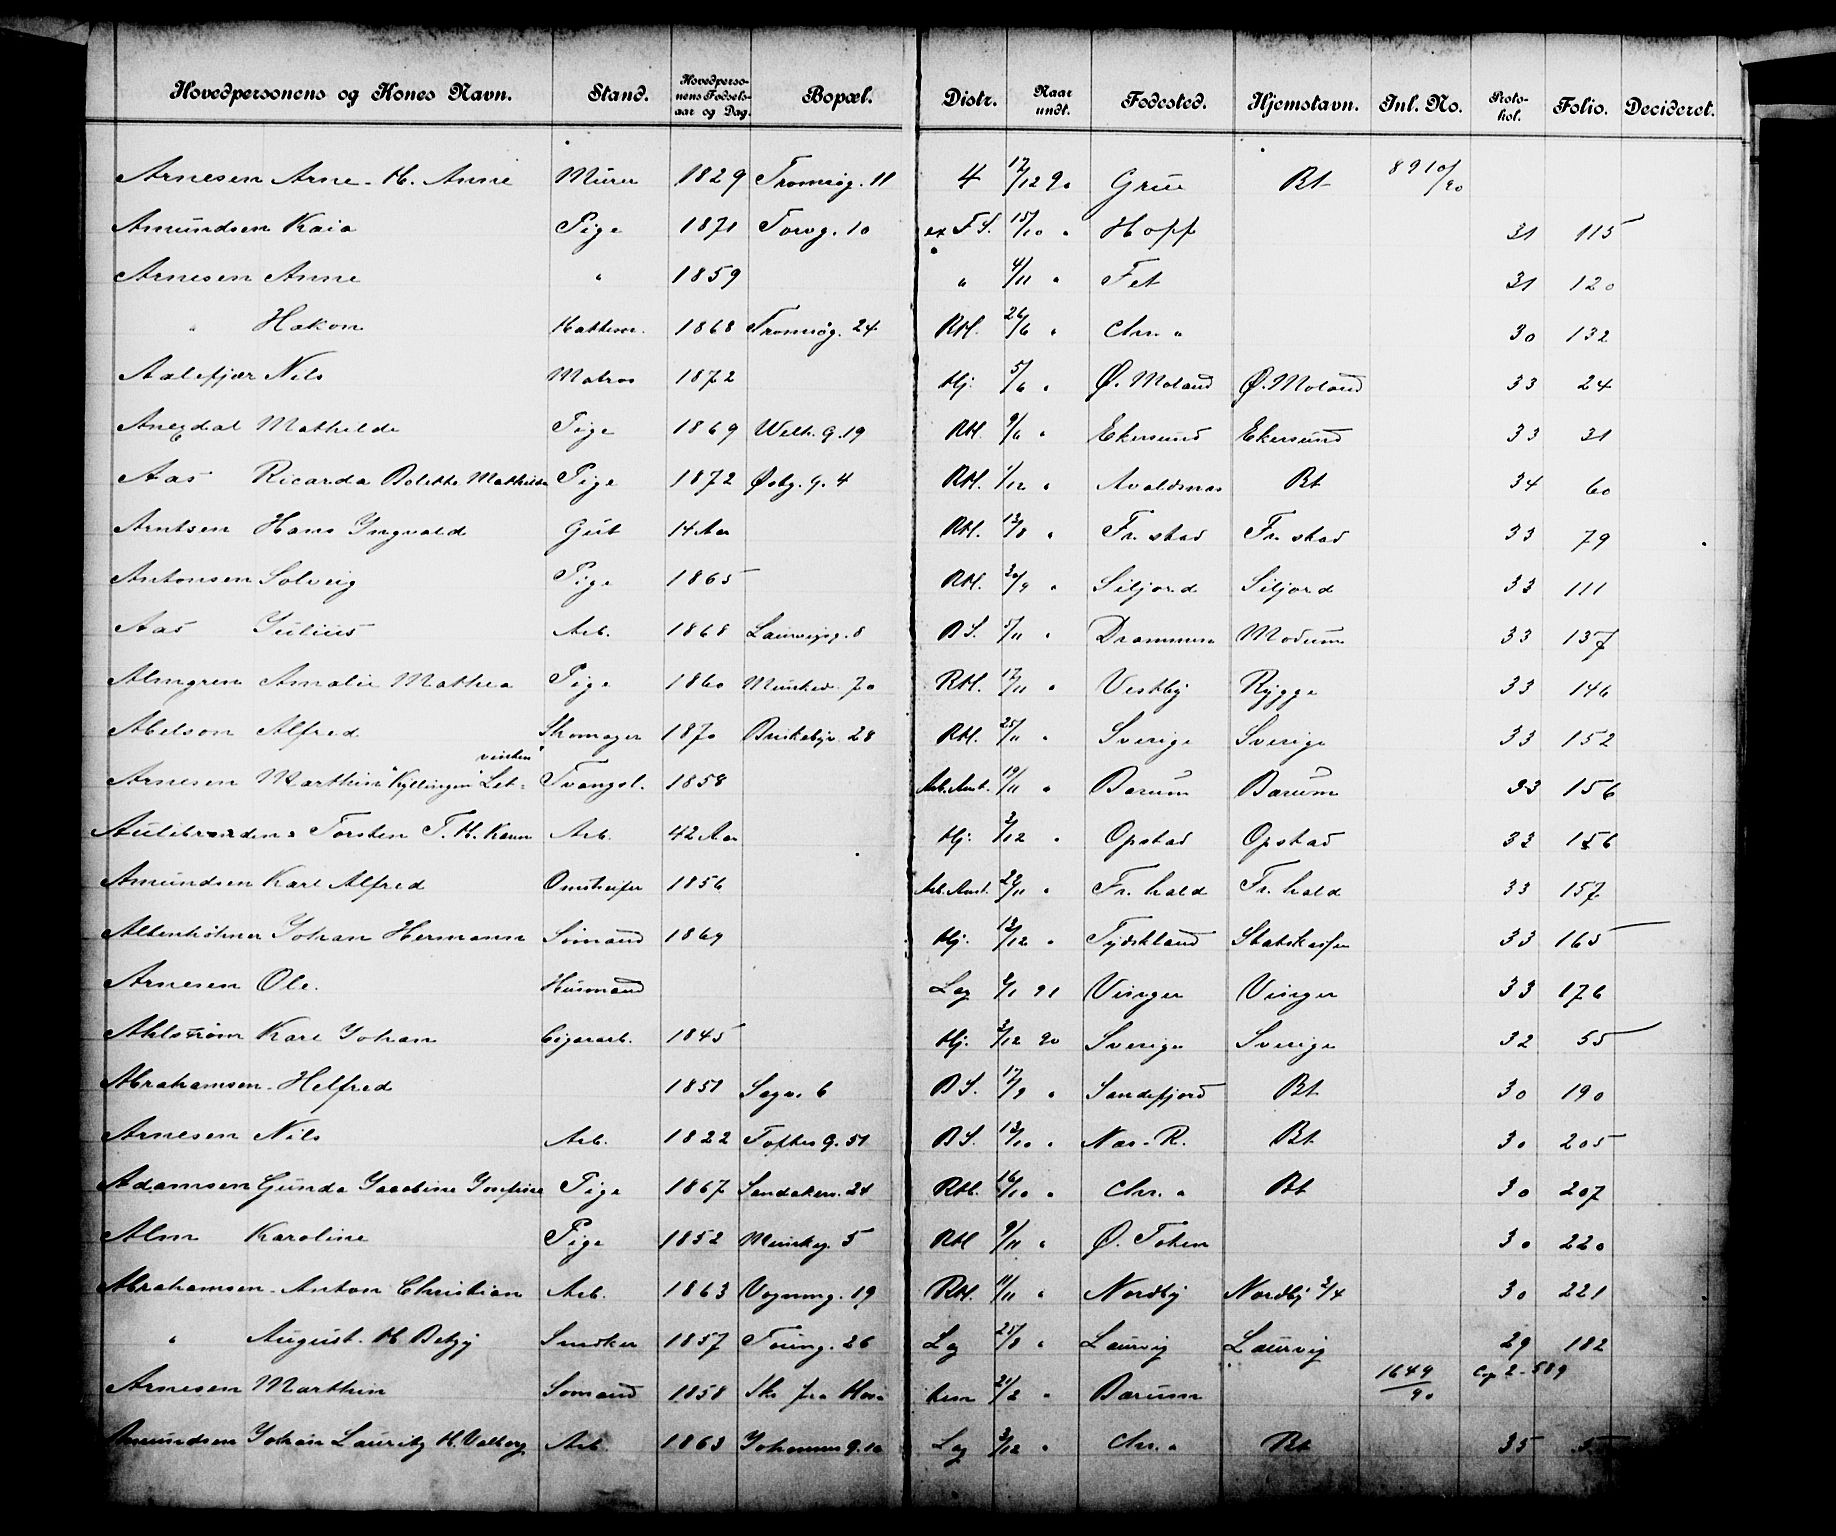 Hovedpersonens og Kones Navn. Stand. Hovedperso-nens Fødsels-aar og Dag. Bopæl. Distr. Naar undt. Fødested. Hjemstavn. Inl. No. Proto-kol. Folio. Decideret.
Arnesen Arne - H. Anne Murer 1829 Tromsøg. 11 4 17/12 90 Grue Bt 8910/90
Amundsen Kaia Pige 1871 Torvg. 10 F.S. 15/10 " Hoff 31 115
Arnesen Anne " 1859 " 4/11 " Fet 31 120
" Hakon 1868 Tromsøg. 24 RM. 26/6 " Chr. a 30 132
Aalefjær Nils Matros 1872 Hj. 5/6 " Ø. Moland Ø. Moland 33 24
Mathilde Pige 1869 Welh. g. 19 RM. 9/6 " Ekersund Ekersund 33 31
Aas Ricarda Bolette Mathilde Pige 1872 Østg. g. 4 RM. 1/12 " Avaldsnæs Bt 34 60
Arntsen Hans Yngvald Gut 14 Aar RM. 13/8 " Fr. stad Fr. stad 33 79
Antonsen Solveig Pige 1865 RM. 30/9 " Siljord Siljord 33 111
Aas Julius Arb. 1868 Laurvigsg. 8 B.S. 5/11 " Drammen Modum 33 137
Almgren Amalie Mathea Pige 1860 Munkedv. 70 RM. 17/11 " Vestby Rygge 33 146
Abelson Alfred Skomager 1870 Briskebyv. 28 RM. 25/11 " Sverige Sverige 33 152
Arnesen Marthin "Kyllingen" Tvangsl. 1858 Arb. Anst. 19/11 " Bærum Bærum 33 156
Torsten T. H. Karen Arb. 42 Aar Hj. 3/12 " Opstad Opstad 33 156
Amundsen Karl Alfred Omstreifer 1856 Arb. Anst. 22/11 " Fr. hald Fr. hald 33 157
Altenhöhner Johan Hermann Sømand 1869 Hj. 12/12 " Tydskland Statskassen 33 165
Arnesen Ole. Husmand Lag 91 Vinger Vinger 33 176
Ahlstrøm Karl Johan Cigararb. 1845 Hj. 3/12 90 Sverige Sverige 32 55
Abrahamsen - Helfred 1851 Sagv. 6 B.S. 17/9 " Sandefjord Bt 30 190
Arnesen Nils Arb. 1822 Toftes g. 51 B.S. 13/10 " Næs - R. Bt 30 205
Adamsen Gunda Jacobine Josefine Pige 1867 Sandakerv. 24 RM. 16/10 " Chr. a Bt 30 207
Alm Karoline Pige 1852 Munkeg. 5 RM 9/11 " Ø. Toten 30 220
Abrahamsen - Anton Christian Arb. 1863 Vognmg. 19 RM. 11/11 " Nordby Nordby 2/4 30 221
" August. H. Betzy Snedker 1857 26 Lag 25/8 " Laurvig Laurvig 29 182
Arnesen Marthin Sømand 1858 Sk. fra 21/2 " Bærum 1649/90 Cop. 2 - 589
Amundsen Johan Lauritz H. Valborg Arb. 1863 Johannes g. 10 Lag 3/12 " Chr. a Bt 35